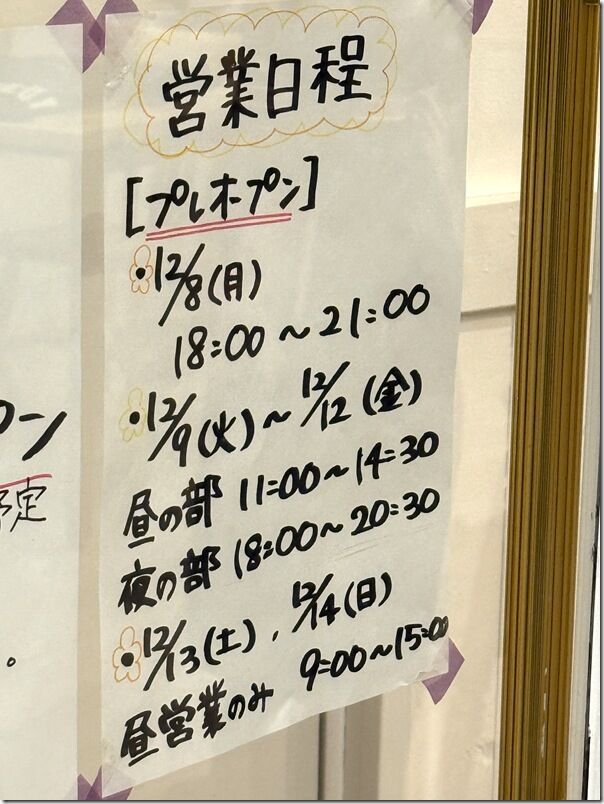 営業日程
[プレオープン]
•12/8(月)
18:00〜21:00
•12/9(火)〜12/12(金)
昼の部 11:00〜14:30
夜の部 18:00〜20:30
•12/13(土)、12/14(日)
昼営業のみ 9:00〜15:00
プン
予定
。